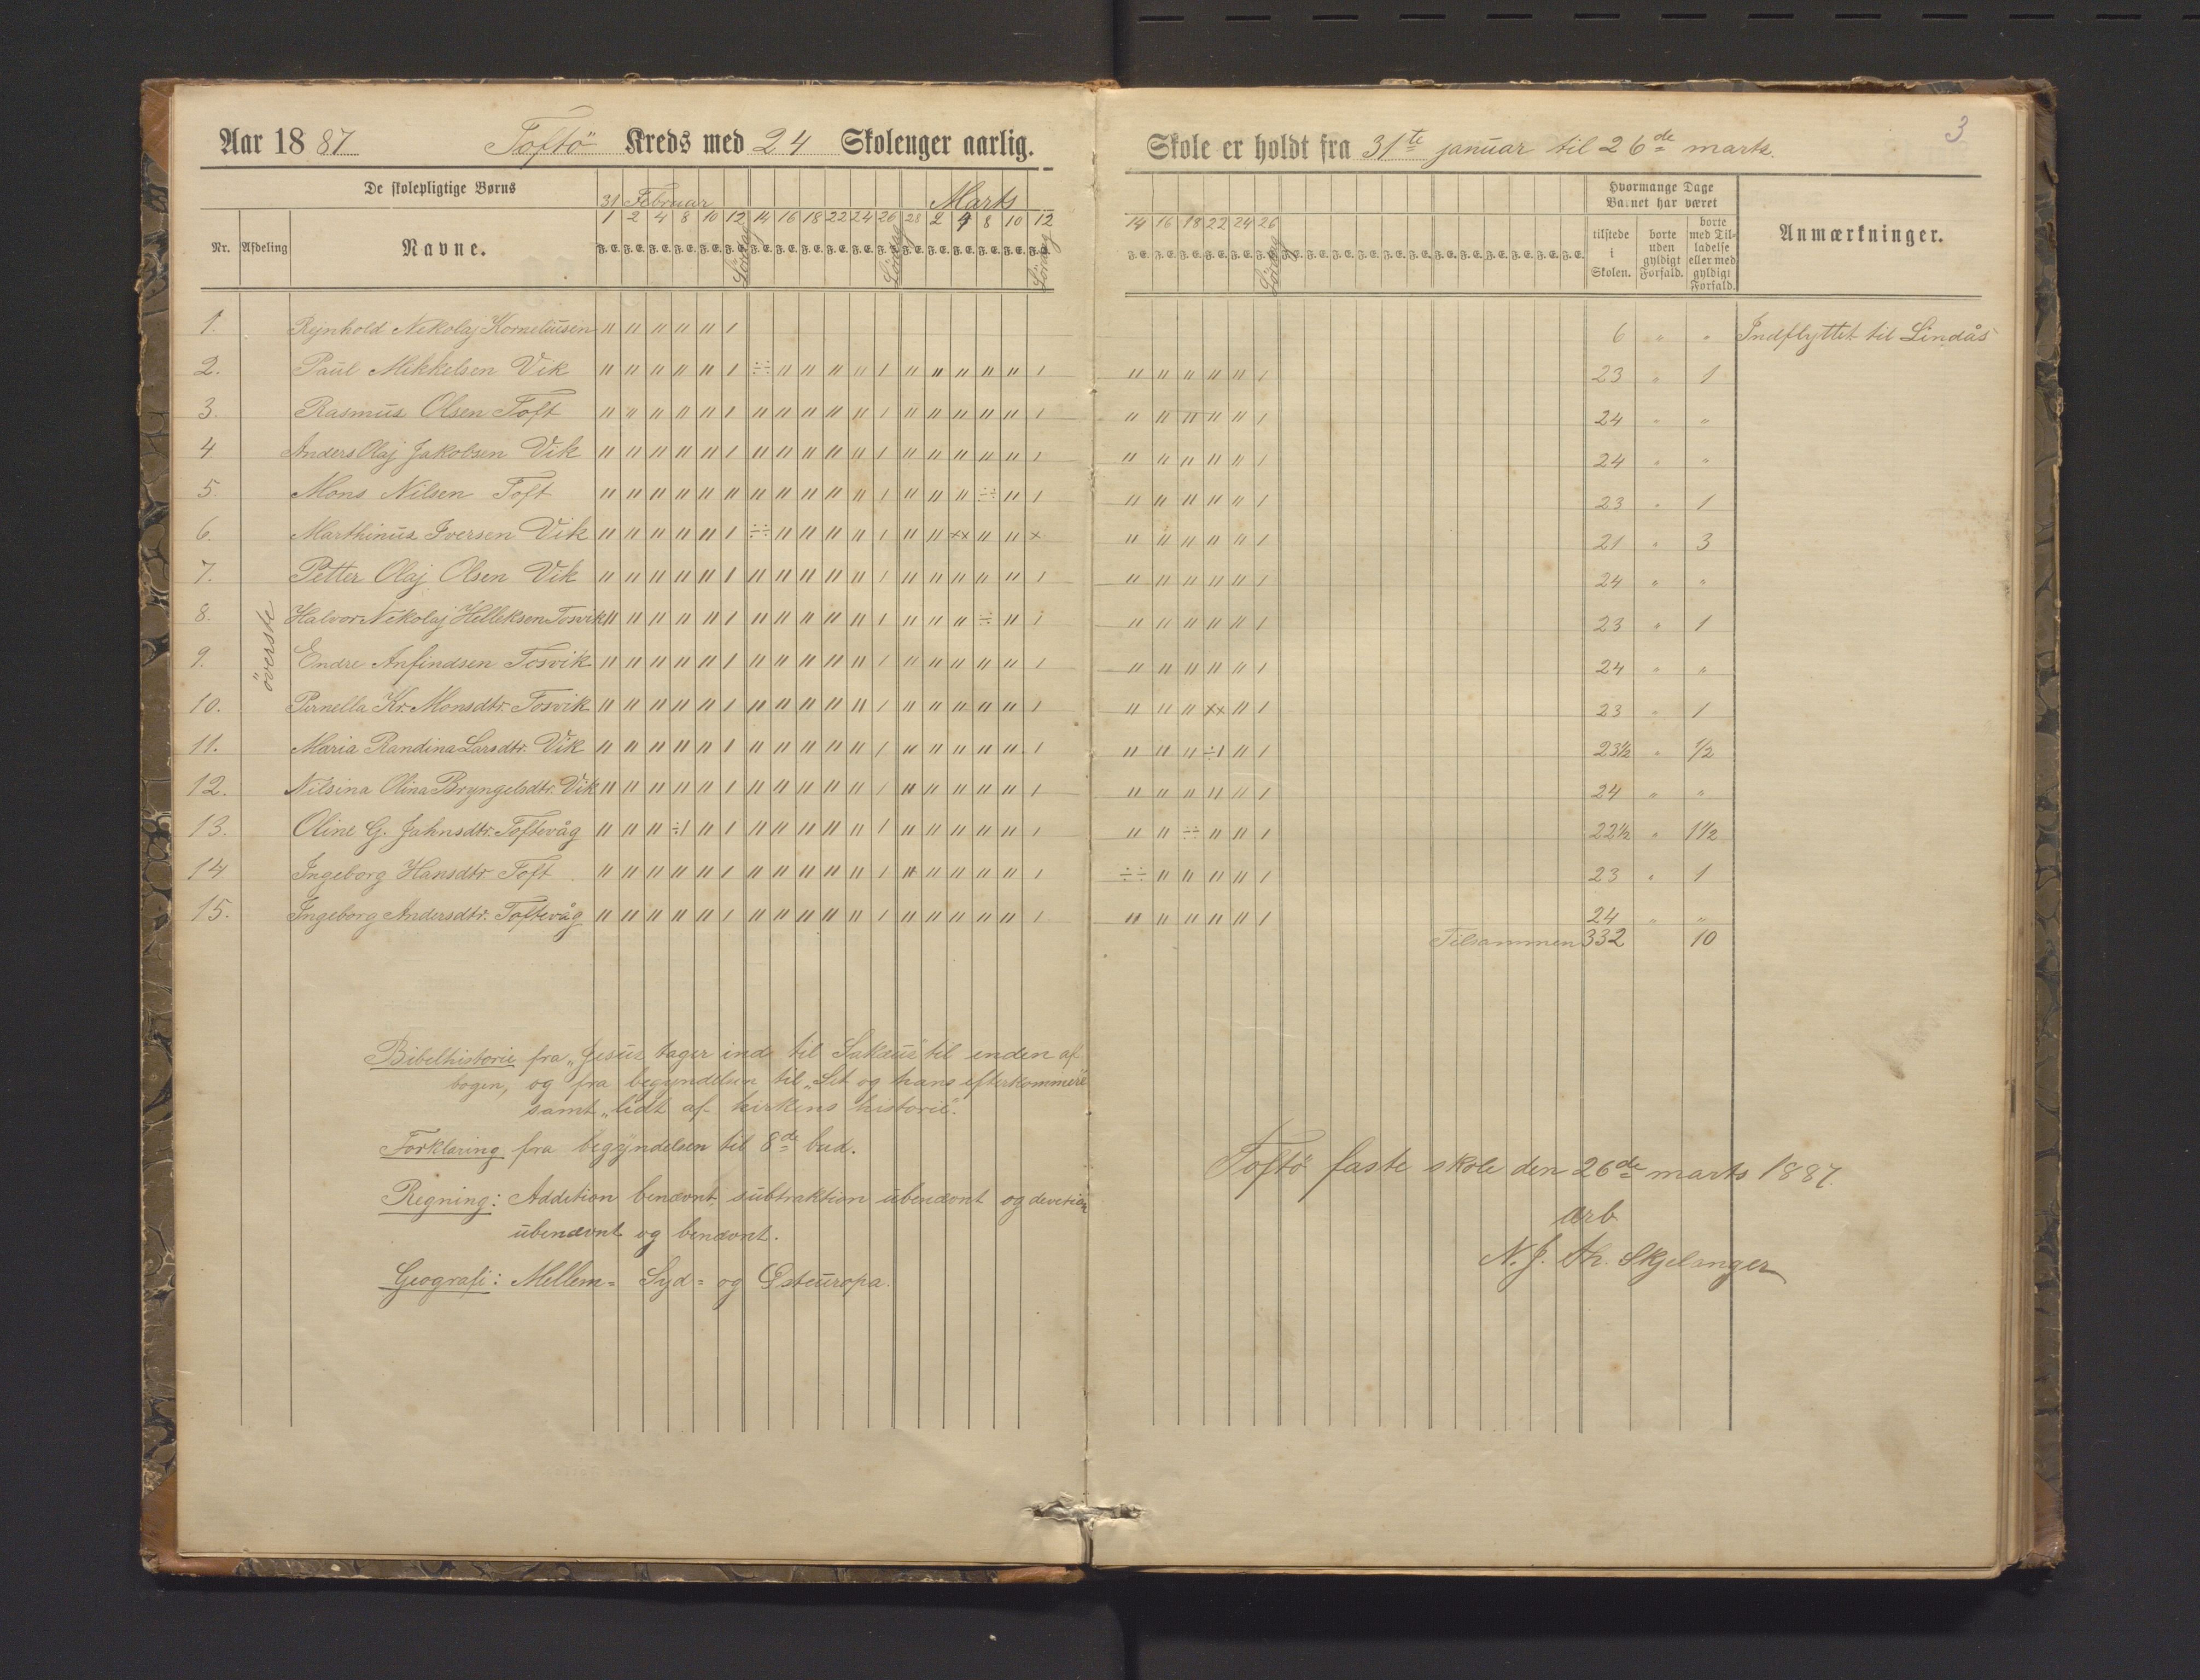 Aar 1887 Toftö Kreds med 24 Skolenger aarlig.
De skolepligtige Børns
31 Februar Marts
1 2 4 8 10 12 14 16 18 22 24 26 28 2 4 8 10 12
Nr. Afdeling Navne. F. E. F. E. F. E. F. E. F. E. F. E. F. E. F. E. F. E. F. E. F. E. F. E. F. E. F. E. F. E. F. E. F. E. F. E.
Lördag Lördag Lördag
överste
1. Rejnhold Nekolaj Korneliusen " " " " " /
2. Paul Mikkelsen Vik " " " " " / ÷÷ " " " " / " " " " " /
3. Rasmus Olsen Toft " " " " " / " " " " " / " " " " " /
4 Anders Olaj Jakobsen Vik " " " " " / " " " " " / " " " " " /
5. Mons Nilsen Toft " " " " " " " " " " " / " " " ÷÷ " /
6. Marthinus Iversen Vik " " " " " / ÷÷ " " " " / " " ×× " " ×
7. Petter Olaj Olsen Vik " " " " " / " " " " " / " " " " " /
8. Halvor Nekolaj Helleksen Tosvik " " " " " / " " " " " / " " " ÷ " /
9. Endre Anfindsen Tosvik " " " " " / " " " " " / " " " " " /
10. Pernella Kr. Monsdtr. Tosvik " " " " " / " " " " " / " " " " " /
11. Maria Randina Larsdtr. Vik " " " " " / " " " " " / " " " " " /
12. Nilsina Olina Bryngelsdtr. Vik " " " " " / " " " " " / " " " " " /
13. Oline G. Jahnsdtr. Toftevåg " " " ÷/ " / " " " " " / " " " " " /
14 Ingeborg Hansdtr. Toft " " " " " / " " " " " / " " " " " /
15. Ingeborg Andersdtr. Toftevåg " " " " " / " " " " " / " " " " " /
Bibelhistorie fra „Jesus tager ind til Sakæus" til enden af
bogen, og fra begyndelsen til „Set og hans efterkommere"
samt „lidt af kirkens historie".
Forklaring fra begyndelsen til 8de bud.
Regning: Addition benævnt, subtraktion ubenævnt og devetion
ubenævnt og benævnt.
Geografi: Mellem= Syd= og Østeuropa.
3
Skole er holdt fra 31te januar til 26de marts.
Hvormange Dage
Barnet har været
14 16 18 22 24 26
F. E. F. E. F. E. F. E. F. E. F. E. F. E. F. E. F. E. F. E. F. E. F. E. F. E. F. E. F. E. F. E. F. E. F. E.
Lördag
tilstede
i
Skolen.
borte
uden
gyldigt
Forfald.
borte
med Til=
ladelse
eller med
gyldigt
Forfald.
Anmærkninger.
6 " " Indflyttet til Lindås
" " " " " / 23 " 1
" " " " " / 24 " "
" " " " " / 24 " "
" " " " " / 23 " 1
" " " " " / 21 " 3
" " " " " / 24 " "
" " " " " / 23 " 1
" " " " " / 24 " "
" " " ×× " / 23 " 1
" " " ÷/ " / 23½ " ½
" " " " " / 24 " "
" " ÷÷ " " / 22½ " 1½
÷÷ " " " " / 23 " 1
" " " " " / 24 " "
Tilsammen 332 10
Toftö faste skole den 26de marts 1887.
ærb
N. J. Th. Skjelanger